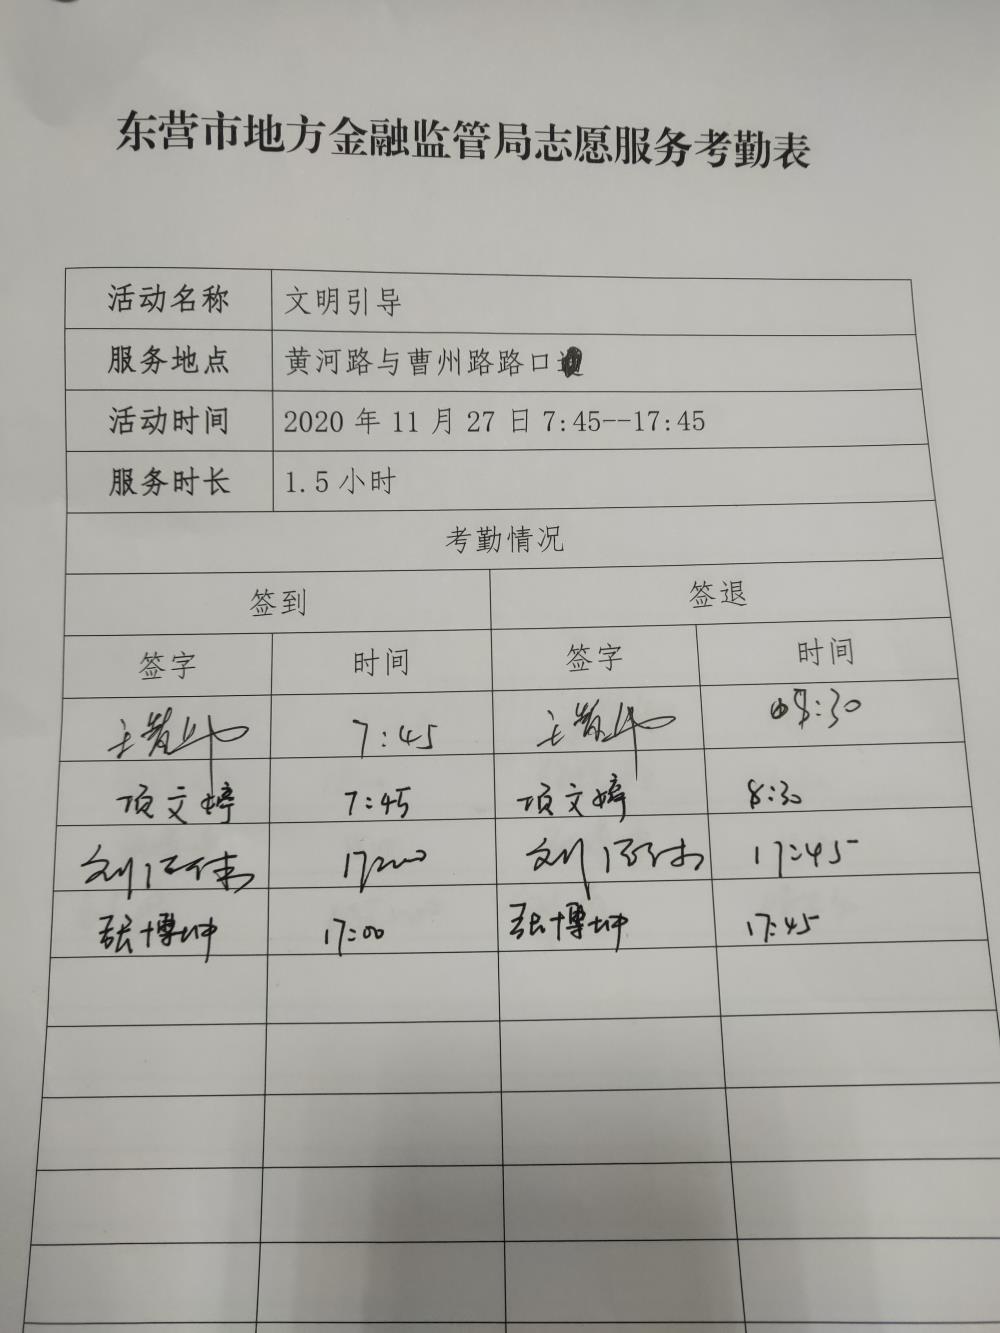 东营市地方金融监管局志愿服务考勤表
活动名称 文明引导
服务地点 黄河路与曹州路路口
活动时间 2020 年 11 月 27 日 7:45--17:45
服务时长 1.5 小时
考勤情况
签到 签退
签字 时间 签字 时间
7:45 08:30
项文婷 7:45 项文婷 8:30
刘 17:00 刘 17:45
张博坤 17:00 张博坤 17:45